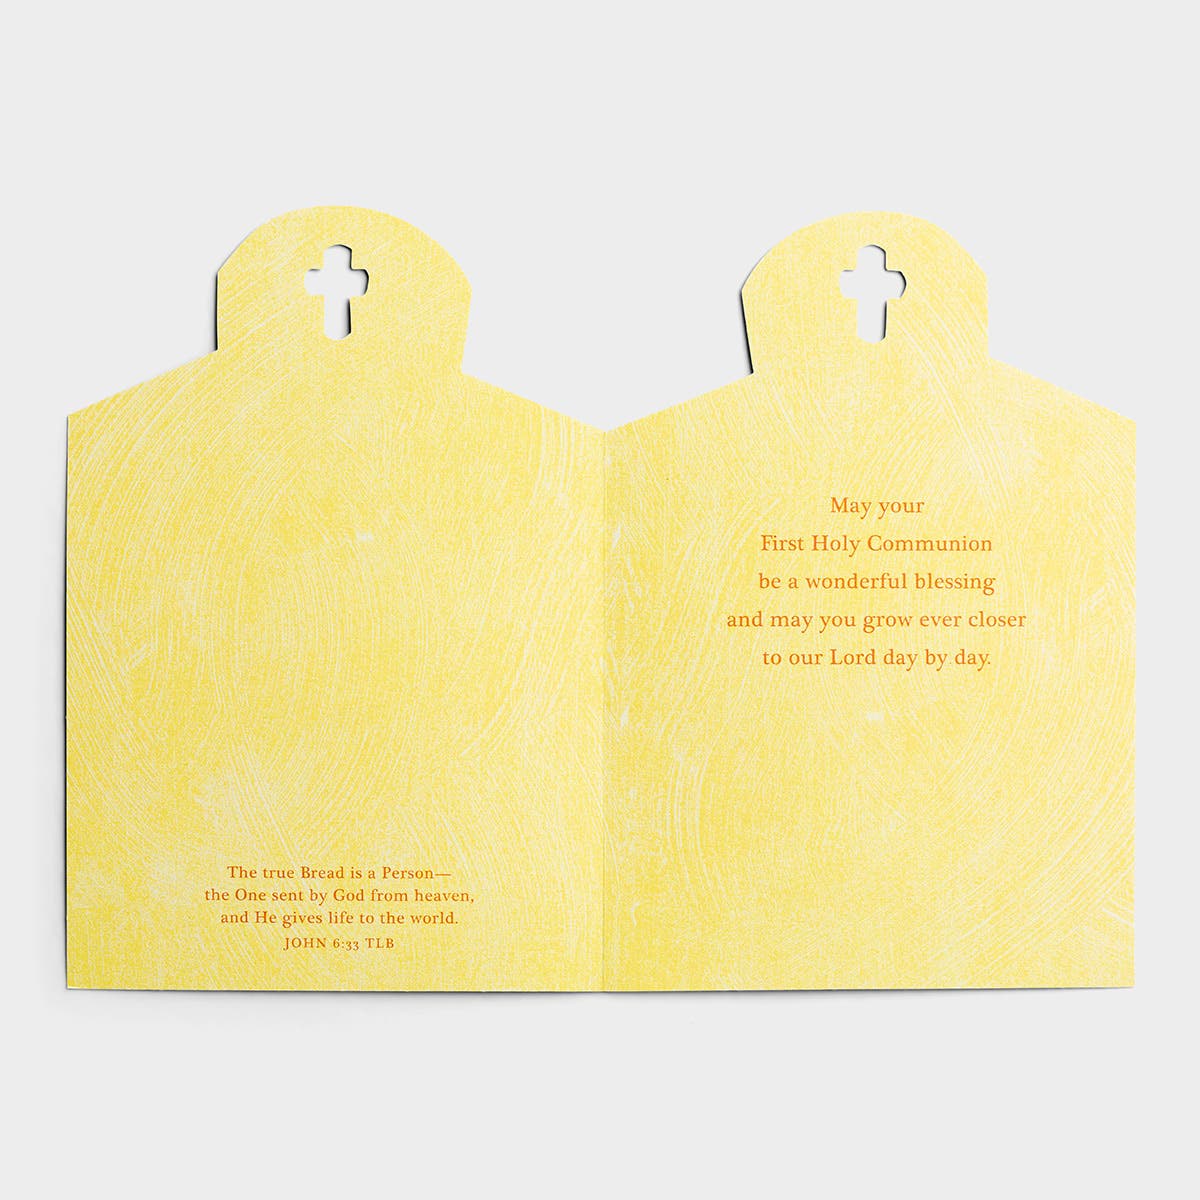 The true Bread is a Person—
the One sent by God from heaven,
and He gives life to the world.
JOHN 6:33 TLB
May your
First Holy Communion
be a wonderful blessing
and may you grow ever closer
to our Lord day by day.